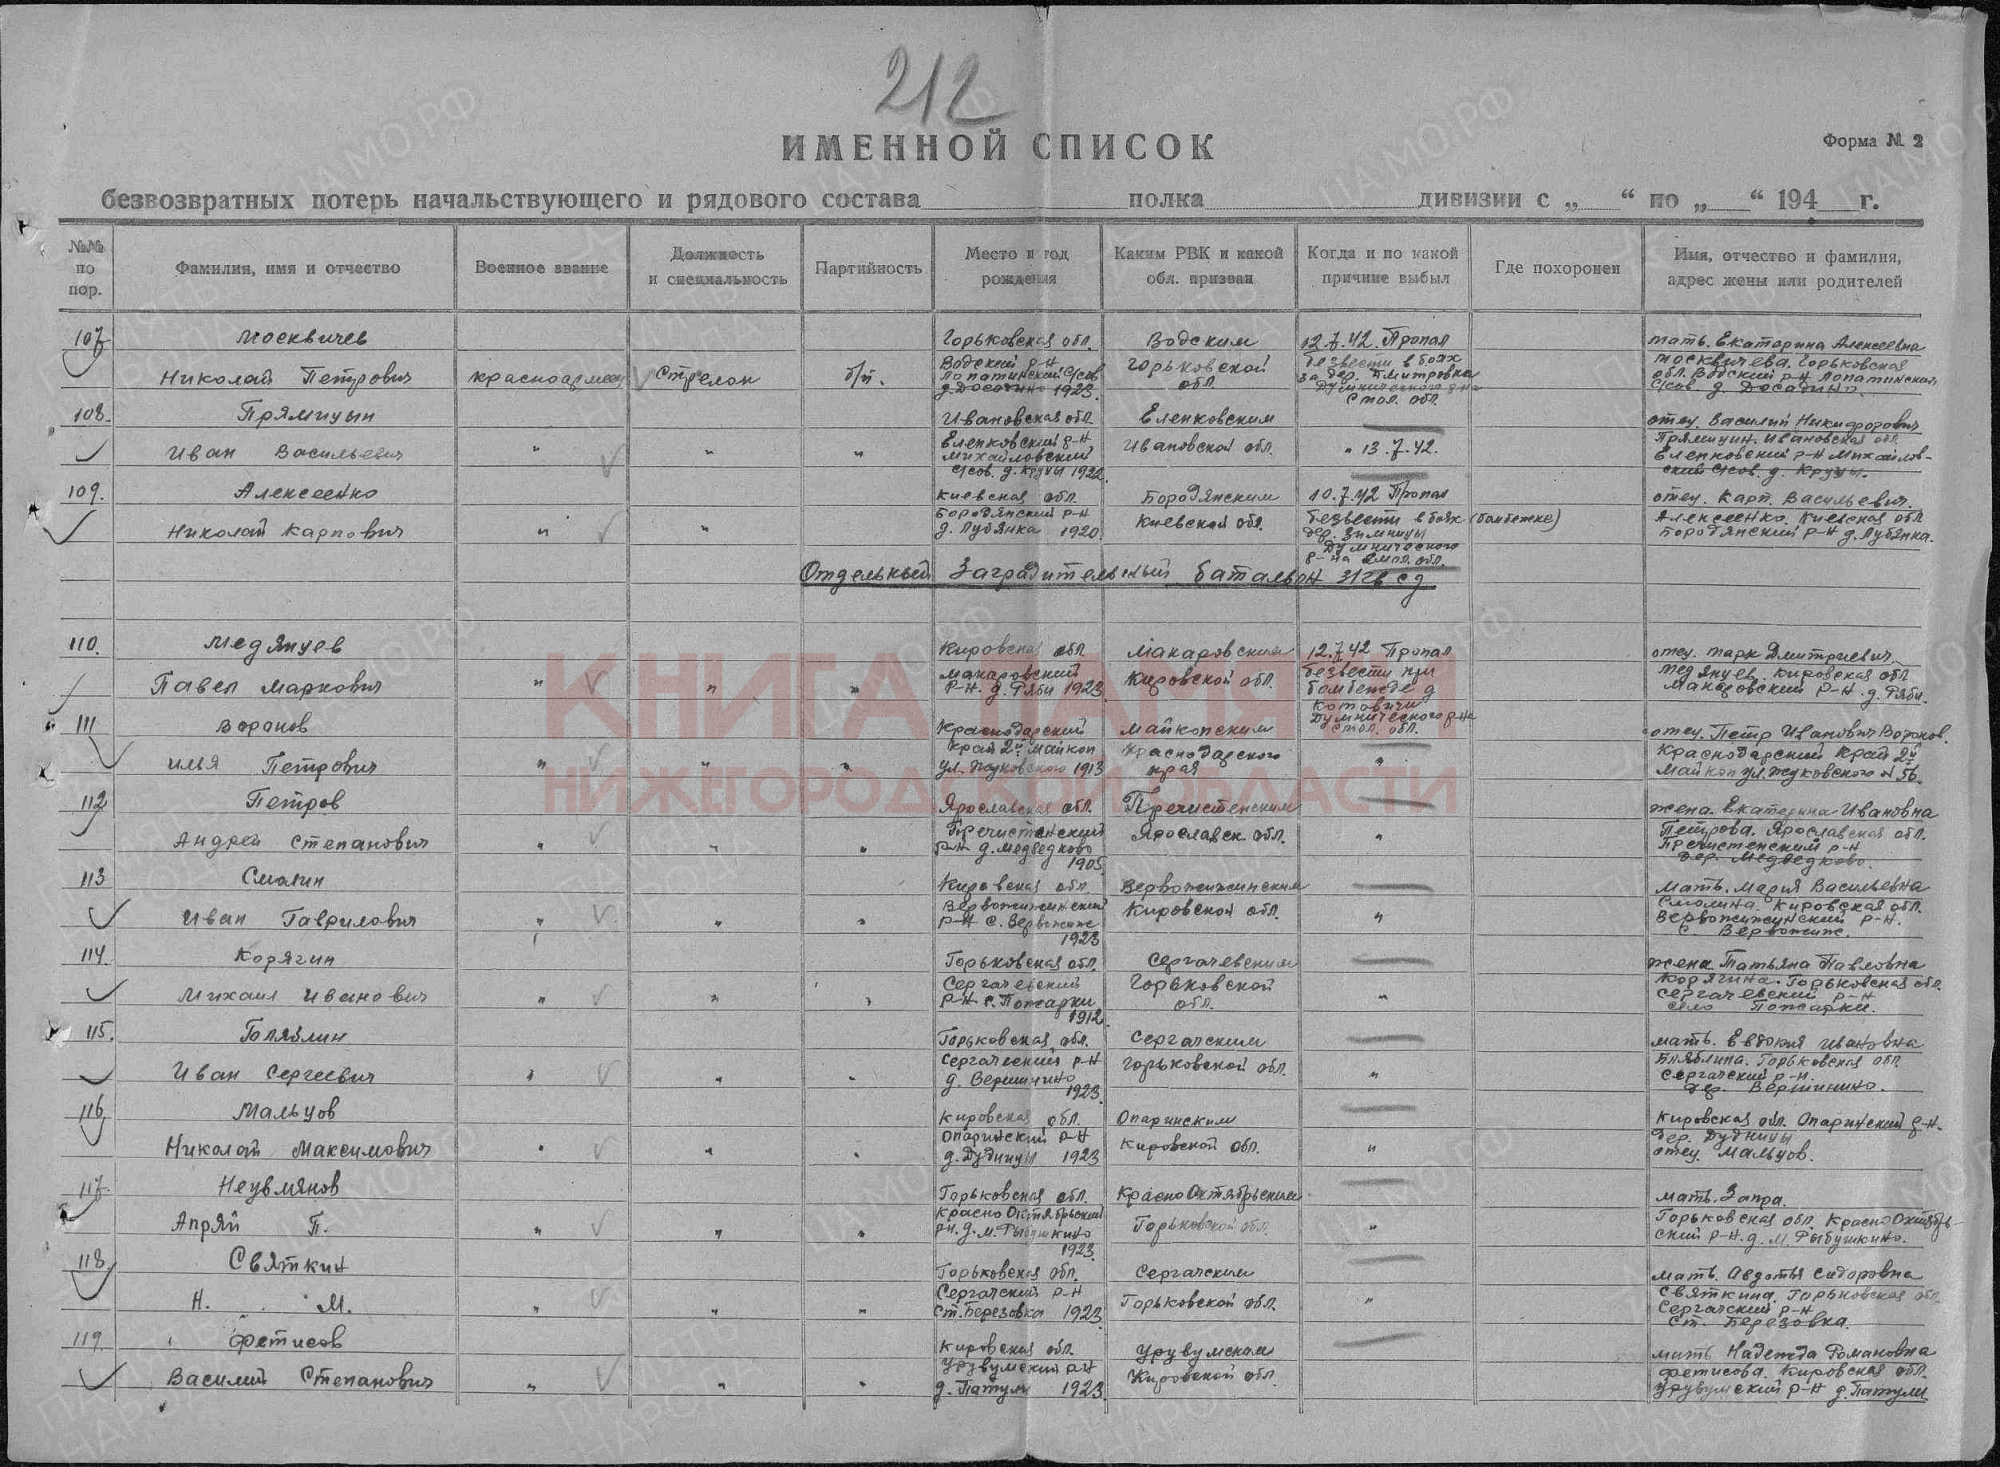 212
ИМЕННОЙ СПИСОК
Форма № 2
безвозвратных потерь начальствующего и рядового состава полка дивизии с „ “ по „ “ 194 г.
№№ по пор.
Фамилия, имя и отчество
Военное звание
Должность и специальность
Партийность
Место и год рождения
Каким РВК и какой обл. призван
Когда и по какой причине выбыл
Где похоронен
Имя, отчество и фамилия, адрес жены или родителей
107
Москвичев
Николай Петрович
красноармеец
Стрелок
б/п.
Горьковская обл.
Водский р-н
Лопатинский С/сов
д. Досадино 1923.
Водским
Горьковской
обл.
12.7.42. Пропал
безвести в боях
за дер. Дмитровка
Думинического р-на
Смол. обл.
мать. Екатерина Алексеевна
Москвичева. Горьковская
обл. Водский р-н Лопатинский
С/сов. д. Досадино.
108.
Прямицын
Иван Васильевич
"
"
"
Ивановская обл.
Еленковский р-н
Михайловский
С/сов. д. Круцы 1922.
Еленковским
Ивановской обл.
" 13.7.42.
отец. Василий Никифорович
Прямицин. Ивановская обл.
Еленковский р-н Михайлов-
ский С/сов. д. Круцы.
109.
Алексеенко
Николай Карпович
"
"
Киевская обл.
Бородянский р-н
д. Лубянка 1920.
Бородянским
Киевской обл.
10.7.42 Пропал
безвести в боях (бомбежке)
дер. Зимницы
Думинического
р-на Смол. обл.
отец. Карп. Васильевич.
Алексеенко. Киевская обл
Бородянский р-н д. Лубянка.
Отдельный Заградительный батальон 31 гв сд
110.
Медянцев
Павел Маркович
"
"
"
Кировская обл
Макаровский
р-н. д. Ряби 1923
Макаровским
Кировской обл.
12.7.42 Пропал
безвести при
бомбежде д
Котовичи
Думинического р-на
Смол. обл.
отец. Марк Дмитриевич
Медянцев. Кировская обл
Макаровский р-н. д. Ряби.
111
Воронов
Илья Петрович
"
"
"
Краснодарский
край г. Майкоп
ул. Жуковского 1913
Майкопским
Краснодарского
края
"
отец. Петр Иванович Воронов.
Краснодарский край г.
Майкоп ул. Жуковского N 56.
112
Петров
Андрей Степанович
"
"
"
Ярославская обл.
Пречистенский
р-н д. Медведково
1905.
Пречистенским
Ярославск. обл.
"
жена. Екатерина Ивановна
Петрова. Ярославская обл.
Пречистенский р-н
дер. Медведково.
113
Смолин
Иван Гаврилович
"
"
"
Кировская обл.
Вервожинский
р-н с. Вервожине
1923
Кировской обл.
"
Мать. Мария Васильевна
Смолина. Кировская обл.
114.
Корягин
Михаил Иванович
"
"
"
Горьковская обл.
Сергачевский
р-н с. Пожарки
1912.
Сергачевским
Горьковской
обл.
"
жена Татьяна Павловна
Корягина. Горьковская обл.
Сергачевский р-н
село Пожарки.
115.
Иван Сергеевич
"
"
"
Горьковская обл.
Сергаческий р-н
д. Вершинино
1923.
Сергачским
Горьковской обл.
"
мать. Евдокия Ивановна
Горьковская обл.
Сергачский р-н.
дер. Вершинино.
116
Мальцов
Николай Максимович
"
"
"
Кировская обл.
Опаринский р-н
д. Дудницы 1923
Опаринским
Кировской обл.
"
Кировская обл. Опаринский р-н.
дер. Дудницы
отец. Мальцов.
117.
Неувмянов
Апряй П.
"
"
"
Горьковская обл.
КрасноОктябрьский
рн. д. М. Рыбушкино
1923.
КрасноОктябрьским
Горьковской обл.
"
мать. Запра.
Горьковская обл. КрасноОктябрь-
ский р-н. д. М. Рыбушкино.
118.
Святкин
Н. М.
"
"
"
Горьковская обл.
Сергачский р-н
ст. Березовка 1923.
Сергачским
Горьковской обл.
"
мать. Авдотья Сидоровна
Святкина. Горьковская обл.
Сергачский р-н
ст. Березовка.
119.
Фетисов
Василий Степанович
"
"
"
Кировская обл.
Урувумский р-н
д. Патули 1923.
Урувумским
Кировской обл.
мать Надежда Романовна
Фетисова. Кировская обл.
Урувумский р-н д. Патули
КНИГА ПАМЯТИ
НИЖЕГОРОДСКОЙ ОБЛАСТИ